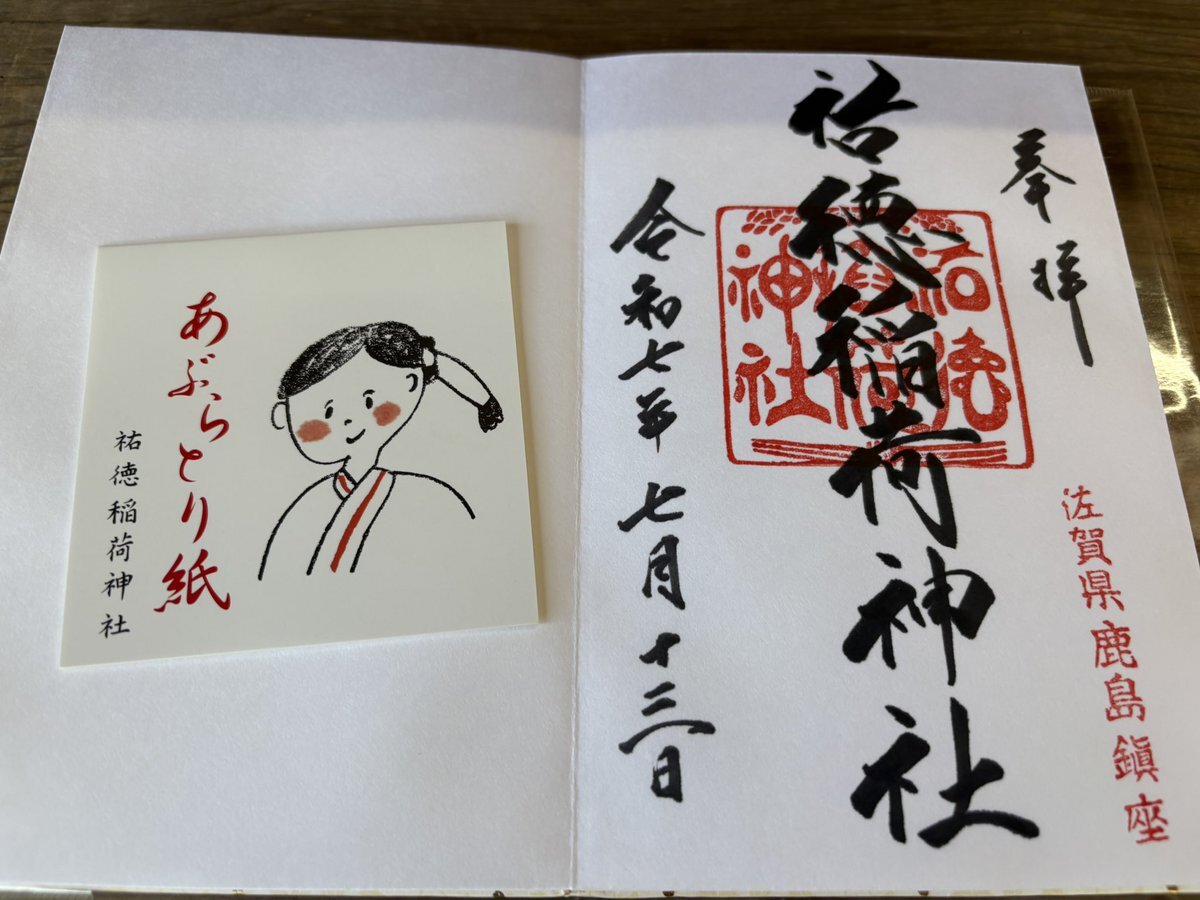 奉拝
祐徳稲荷神社
祐徳
稲荷
神社
佐賀県鹿島鎮座
令和七年七月十三日
あぶらとり紙
祐徳稲荷神社